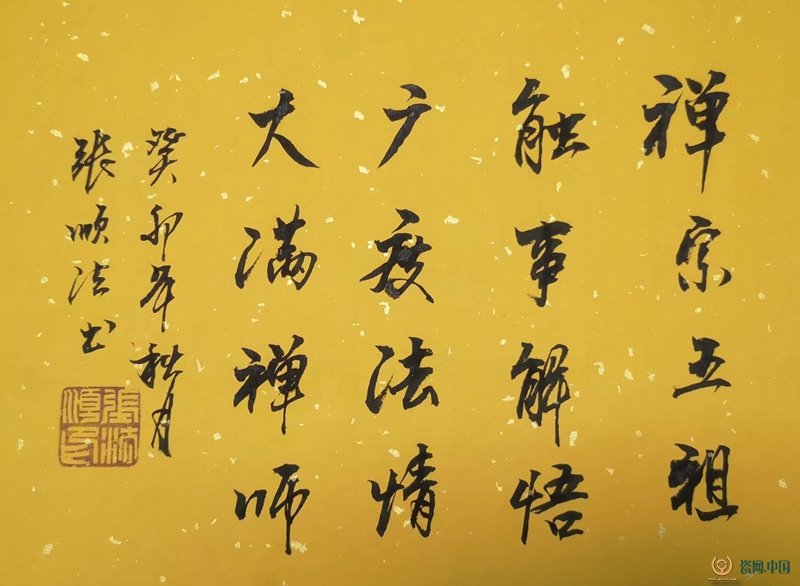 禅宗五祖
触事解悟
广度法情
大满禅师
癸卯年秋月
張顺法书
張顺法印
瓷网.中国